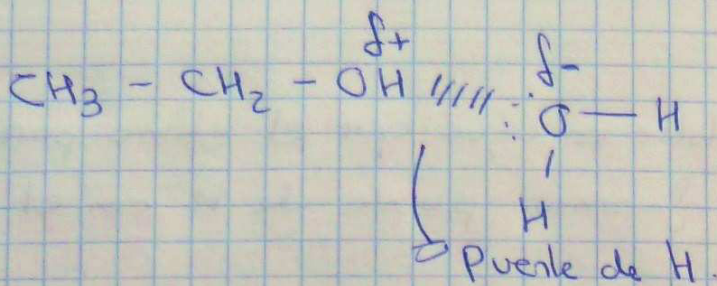 δ+ δ-
CH3 - CH2 - OH ///// :O — H
H
Puente de H.